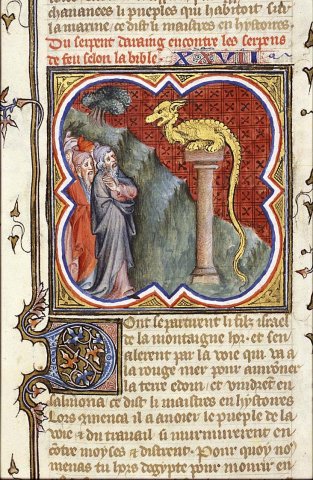 chananees & pueples qui habitoit
la marine, ce dist li maistres en hystoires
Du serpent daraing encontre les serpens
de feu selon la bible. XXVII
Dont se partirent li filz israel
de la montaigne hor. et sen
alerent par la voie qui va a
la rouge mer pour auironner
la terre edom. et vindrent en
salmona ce dist li maistres en hystoires
Lors ꝯmenca il a anoier le pueple de la
voie & du trauail si murmurerent en
cōtre moyses & distrent. Pour quoy noꝰ
menas tu hors degypte pour mourir en